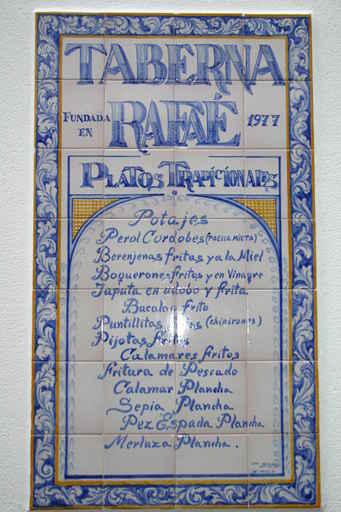 TABERNA
FUNDADA EN RAFAÉ 1977
PLATOS TRADICIONALES
Potajes
Perol Cordobes (paella mixta)
Berenjenas fritas y a la Miel
Boquerones fritos y en Vinagre
Japuta en adobo y frita
Bacalao frito
Puntillitas fritas (chipirones)
Pijotas fritas
Calamares fritos
fritura de Pescado
Calamar Plancha
Sepia Plancha
Pez Espada Plancha
Merluza Plancha.